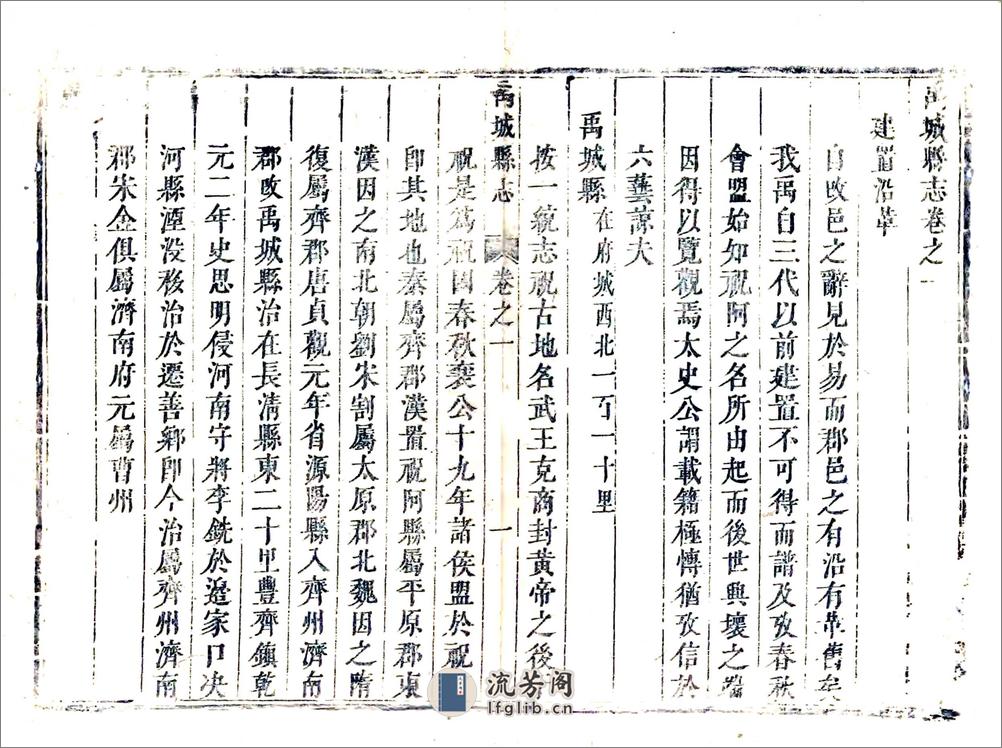 禹城縣志卷之一
建置沿革
自改邑之辭見於易而郡邑之有沿有革舊矣
我禹自三代以前建置不可得而譜及攷春秋
會盟始知祝阿之名所由起而後世興壞之端
因得以覽觀焉太史公謂載籍極博猶攷信於
六藝諒夫
禹城縣在府城西北一百一十里
按一統志祝古地名武王克商封黃帝之後於
禹城縣志 卷之一 一
祝是爲祝國春秋襄公十九年諸侯盟於祝
即其地也秦屬齊郡漢置祝阿縣屬平原郡東
漢因之南北朝劉宋割屬太原郡北魏因之隋
復屬齊郡唐貞觀元年省源陽縣入齊州濟南
郡改禹城縣治在長清縣東二十里豐齊鎮乾
元二年史思明侵河南守將李銑於邉家口决
河縣湮没移治於遷善鄉即今治屬齊州濟南
郡宋金俱屬濟南府元屬曹州
流芳阁
lfglib.cn